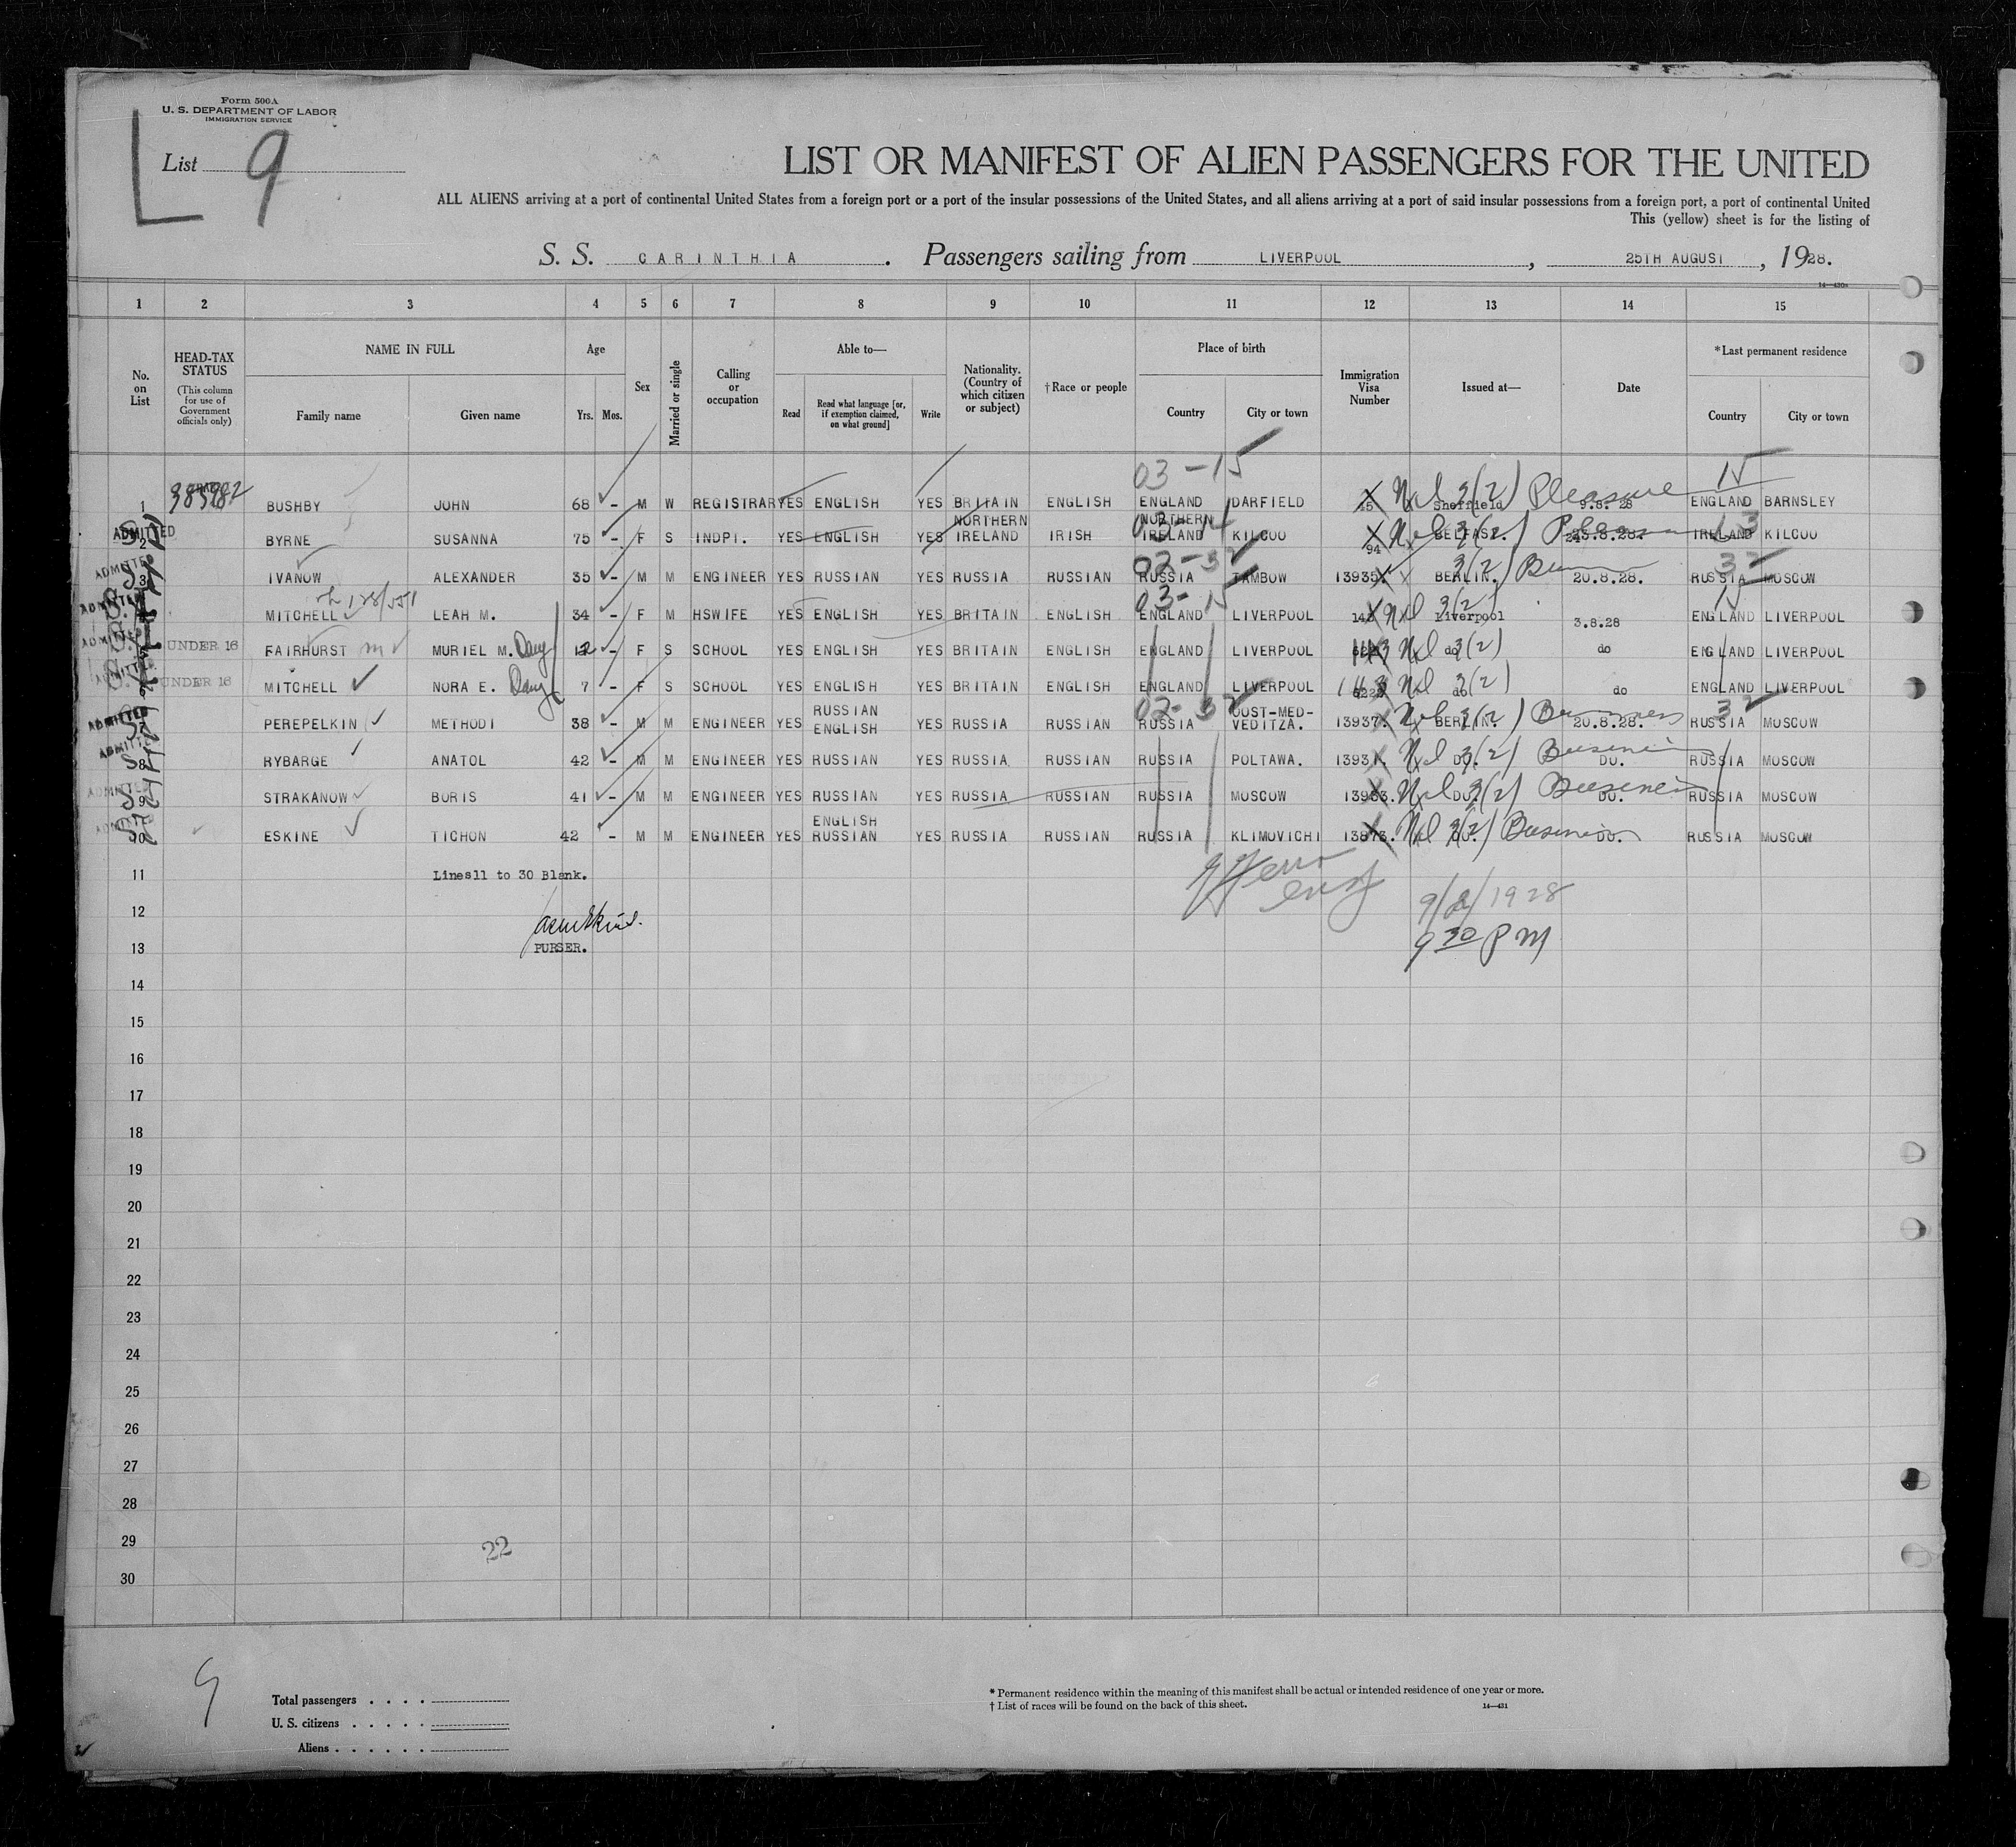 Form 500A
U. S. DEPARTMENT OF LABOR
IMMIGRATION SERVICE
List 9
LIST OR MANIFEST OF ALIEN PASSENGERS FOR THE UNITED
ALL ALIENS arriving at a port of continental United States from a foreign port or a port of the insular possessions of the United States, and all aliens arriving at a port of said insular possessions from a foreign port, a port of continental United
This (yellow) sheet is for the listing of
S. S. CARINTHIA. Passengers sailing from LIVERPOOL, 25TH AUGUST, 1928.
1 2 3 4 5 6 7 8 9 10 11 12 13 14 15
No. on List
HEAD-TAX STATUS
(This column for use of Government officials only)
NAME IN FULL
Family name
Given name
Age
Yrs. Mos.
Sex
Married or single
Calling or occupation
Able to—
Read
Read what language [or, if exemption claimed, on what ground]
Write
Nationality. (Country of which citizen or subject)
†Race or people
Place of birth
Country
City or town
Immigration Visa Number
Issued at—
Date
*Last permanent residence
Country
City or town
03-15 15
1 BUSHBY JOHN 68 - M W REGISTRAR YES ENGLISH YES BRITAIN ENGLISH ENGLAND DARFIELD 3(2) Sheffield Pleasure 9.8.28 ENGLAND BARNSLEY
ADMITTED 2 BYRNE SUSANNA 75 - F S INDPT. YES ENGLISH YES NORTHERN IRELAND IRISH NORTHERN IRELAND KILCOO 94 3(2) BELFAST. IRELAND KILCOO
02-32 32
ADMITTED 3 IVANOW ALEXANDER 35 - M M ENGINEER YES RUSSIAN YES RUSSIA RUSSIAN RUSSIA TAMBOW 13935 3(2) BERLIN. 20.8.28. RUSSIA MOSCOW
03-15 15
ADMITTED MITCHELL LEAH M. 34 - F M HSWIFE YES ENGLISH YES BRITAIN ENGLISH ENGLAND LIVERPOOL 3(2) Liverpool 3.8.28 ENGLAND LIVERPOOL
ADMITTED UNDER 16 FAIRHURST MURIEL M. Daug 12 - F S SCHOOL YES ENGLISH YES BRITAIN ENGLISH ENGLAND LIVERPOOL 143 3(2) do do ENGLAND LIVERPOOL
ADMITTED UNDER 16 MITCHELL NORA E. Daug 7 - F S SCHOOL YES ENGLISH YES BRITAIN ENGLISH ENGLAND LIVERPOOL 143 3(2) do do ENGLAND LIVERPOOL
02-32 32
ADMITTED 7 PEREPELKIN METHODI 38 - M M ENGINEER YES RUSSIAN ENGLISH YES RUSSIA RUSSIAN RUSSIA OUST-MED-VEDITZA. 13937. 3(2) BERLIN. Business 20.8.28. RUSSIA MOSCOW
ADMITTED 8 RYBARGE ANATOL 42 - M M ENGINEER YES RUSSIAN YES RUSSIA RUSSIAN RUSSIA POLTAWA. 3(2) DO. Business DO. RUSSIA MOSCOW
ADMITTED 9 STRAKANOW BORIS 41 - M M ENGINEER YES RUSSIAN YES RUSSIA RUSSIAN RUSSIA MOSCOW 3(2) DO. Business DO. RUSSIA MOSCOW
ADMITTED 10 ESKINE TICHON 42 - M M ENGINEER YES ENGLISH RUSSIAN YES RUSSIA RUSSIAN RUSSIA KLIMOVICHI 3(2) DO. Business DO. RUSSIA MOSCOW
11 Lines11 to 30 Blank.
12 9/2/1928
13 PURSER. 9 30 PM
14
15
16
17
18
19
20
21
22
23
24
25
26
27
28
29 22
30
9
Total passengers . . . .
U. S. citizens . . . . .
Aliens . . . . . .
* Permanent residence within the meaning of this manifest shall be actual or intended residence of one year or more.
† List of races will be found on the back of this sheet.
14—431